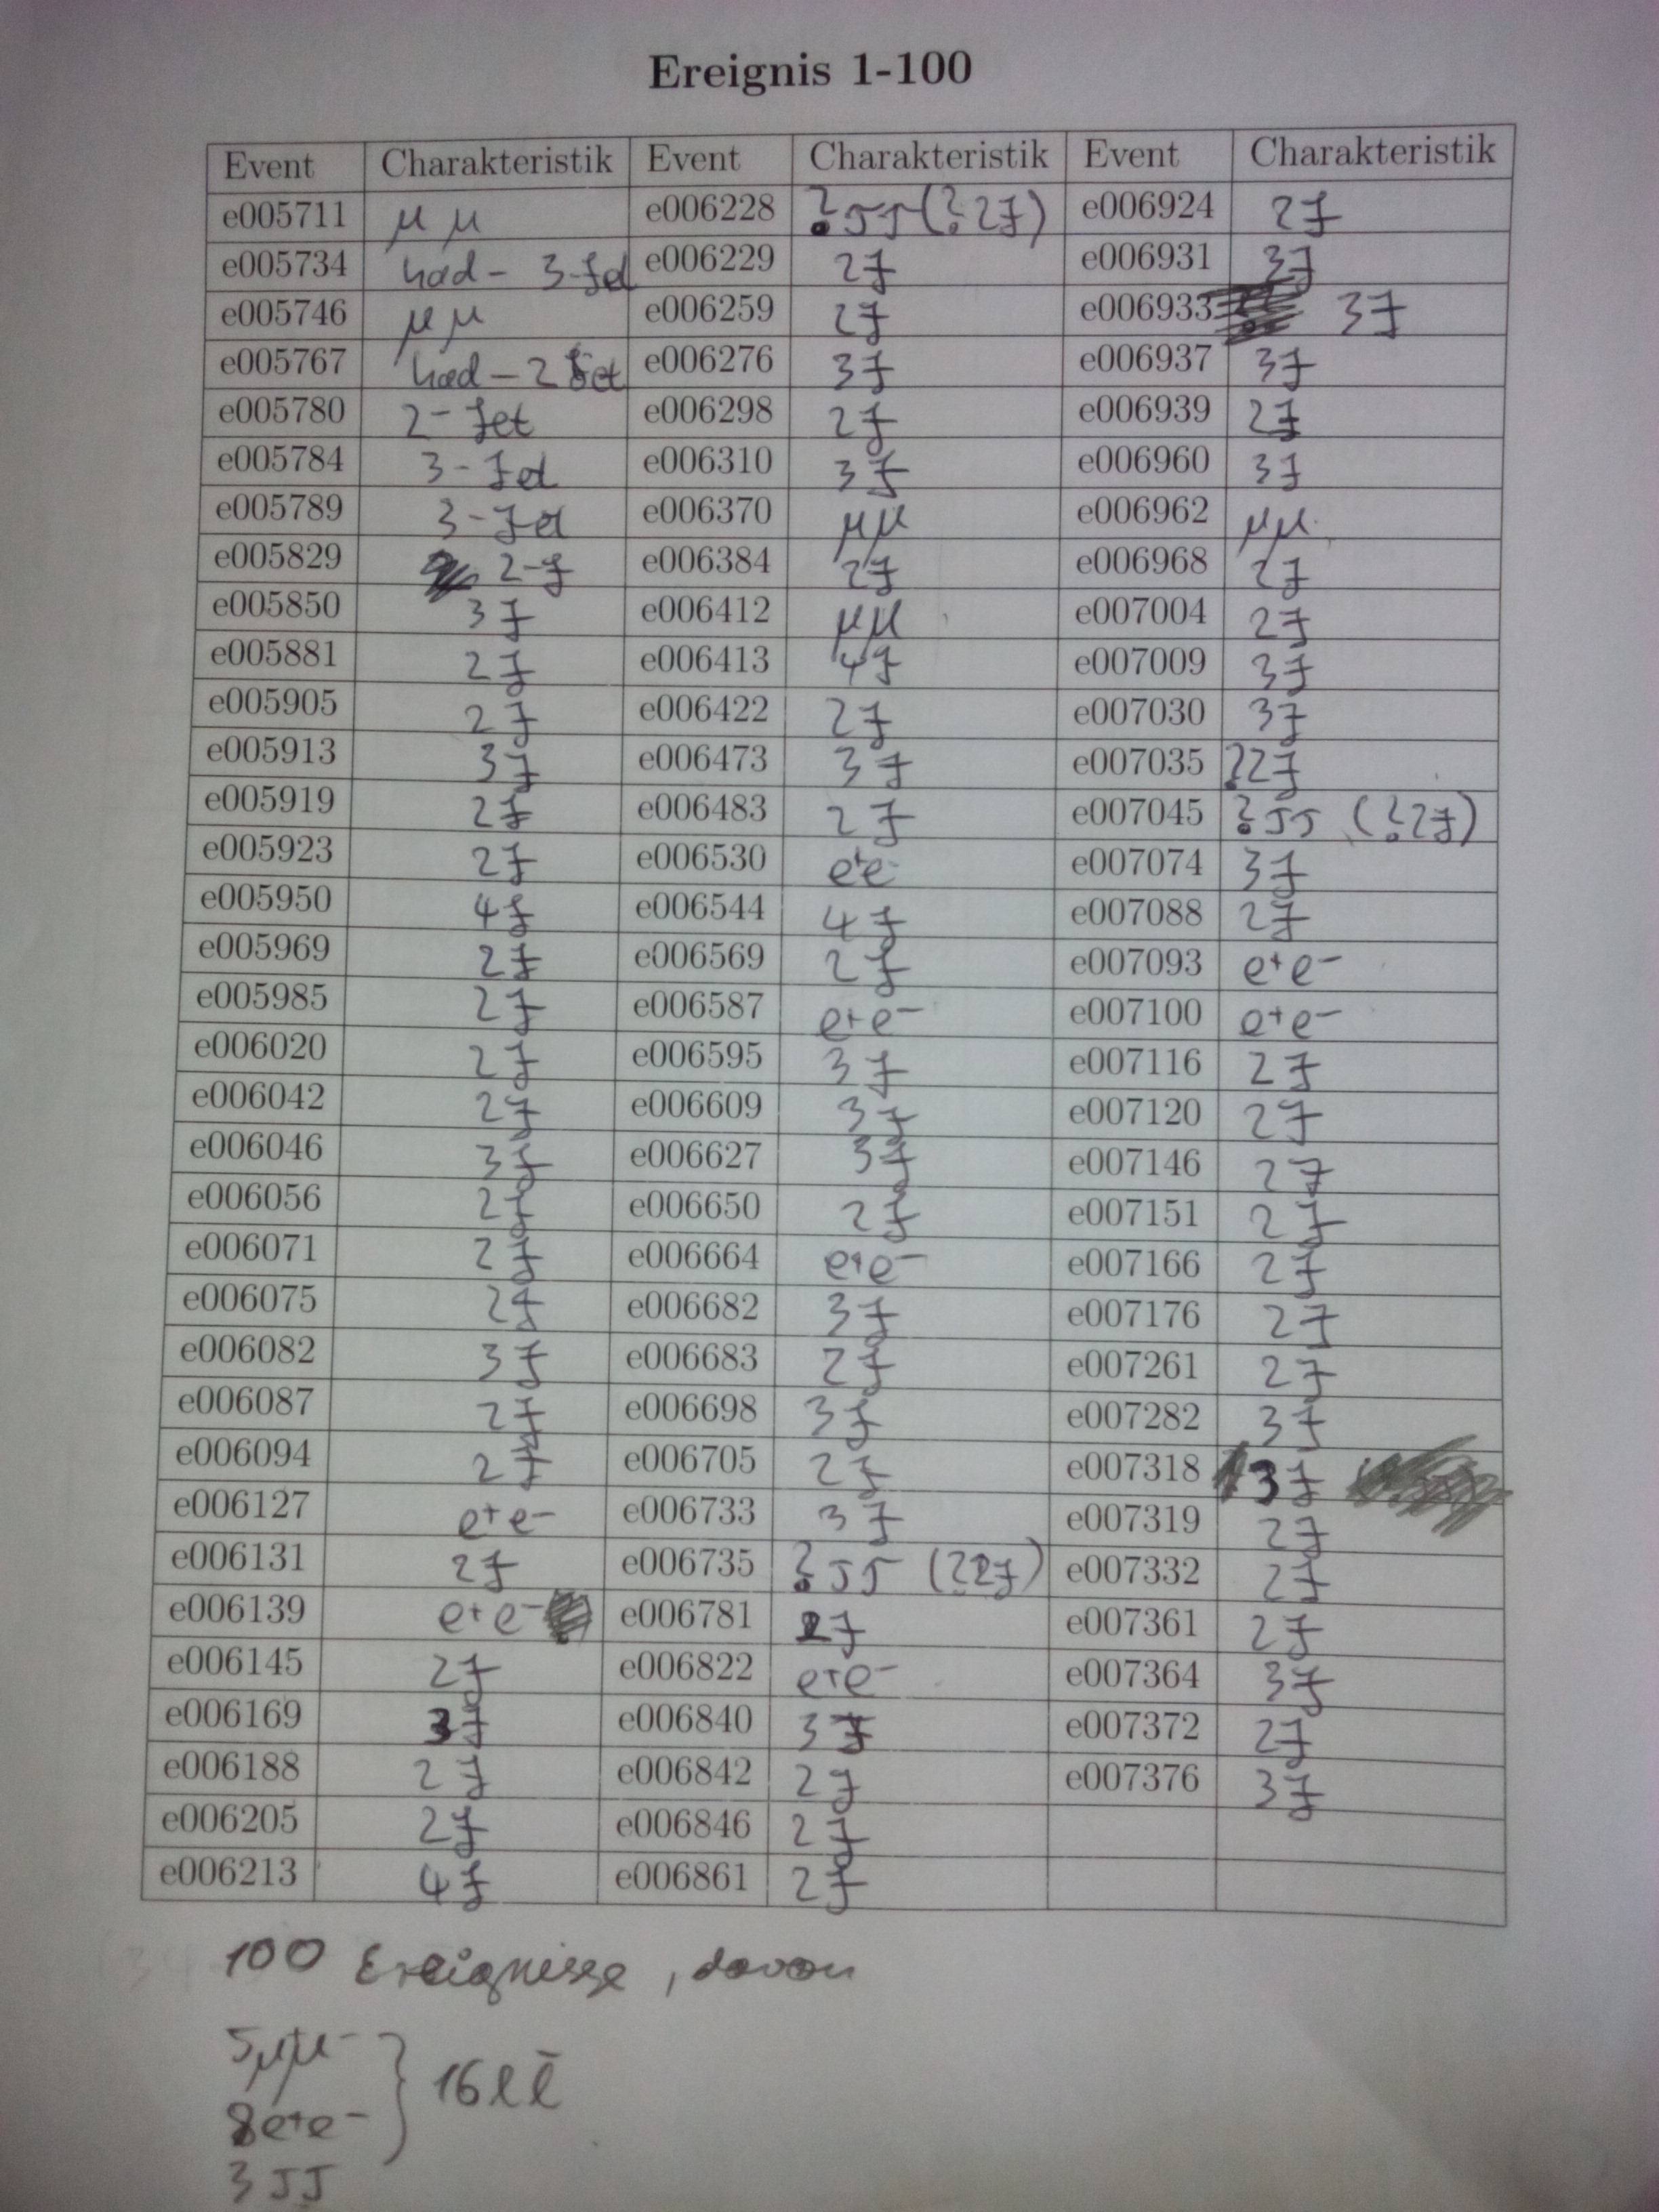 Ereignis 1-100
Event Charakteristik Event Charakteristik Event Charakteristik
e005711 μμ e006228 ?ττ(?2J) e006924 2J
e005734 had- 3-Jet e006229 2J e006931 3J
e005746 μμ e006259 2J e006933 3J
e005767 had-2 Jet e006276 3J e006937 3J
e005780 2-Jet e006298 2J e006939 2J
e005784 3-Jet e006310 3J e006960 3J
e005789 3-Jet e006370 μμ e006962 μμ
e005829 2-J e006384 2J e006968 2J
e005850 3J e006412 μμ e007004 2J
e005881 2J e006413 4J e007009 3J
e005905 2J e006422 2J e007030 3J
e005913 3J e006473 3J e007035 ?2J
e005919 2J e006483 2J e007045 ?ττ (?2J)
e005923 2J e006530 e+e- e007074 3J
e005950 4J e006544 4J e007088 2J
e005969 2J e006569 2J e007093 e+e-
e005985 2J e006587 e+e- e007100 e+e-
e006020 2J e006595 3J e007116 2J
e006042 2J e006609 3J e007120 2J
e006046 3J e006627 3J e007146 2J
e006056 2J e006650 2J e007151 2J
e006071 2J e006664 e+e- e007166 2J
e006075 2J e006682 3J e007176 2J
e006082 3J e006683 2J e007261 2J
e006087 2J e006698 3J e007282 3J
e006094 2J e006705 2J e007318 3J
e006127 e+e- e006733 3J e007319 2J
e006131 2J e006735 ?ττ (?2J) e007332 2J
e006139 e+e- e006781 2J e007361 2J
e006145 2J e006822 e+e- e007364 3J
e006169 3J e006840 3J e007372 2J
e006188 2J e006842 2J e007376 3J
e006205 2J e006846 2J
e006213 4J e006861 2J
100 Ereignisse, davon
5μ+μ-
16 l l̄
8e+e-
3 ττ